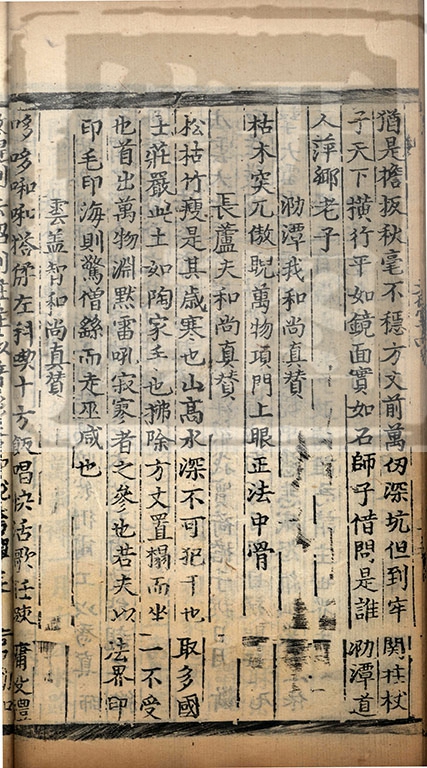 猶是擔板秋毫不穩方丈前萬仞深坑但到牢關拄杖
子天下橫行平如鏡面實如石師子借問是誰泐潭道
人萍鄉老子
泐潭我和尚真贊
枯木突兀傲睨萬物項門上眼正法中骨
長蘆夫和尚真贊
松枯竹瘦是其歲寒也山高水深不可犯干也取多國
土莊嚴此土如陶家手也拂除方丈置榻而坐一不受
也首出萬物淵默雷吼寂寥者之參也若夫以法界印
印毛印海則驚僧繇而走巫咸也
雲蓋智和尚真贊
哆哆啝啝搭俯左科與十方飯唱快活歌任疎慵没禮